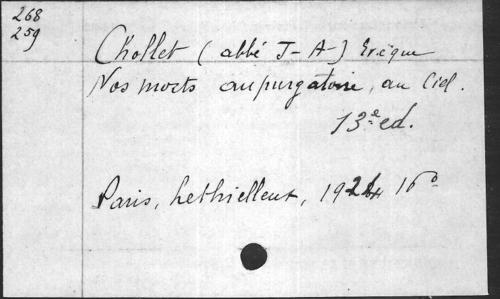 268
259
Chollet (abbé J-A-) Evêque
Nos morts au purgatoire, au Ciel.
13e ed.
Paris, Lethielleux, 1924 16°